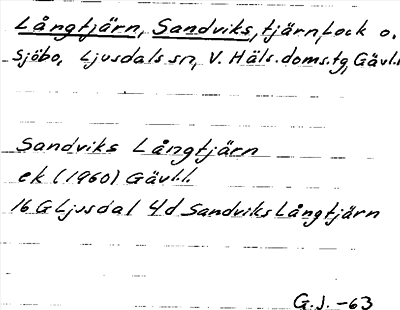 Långtjärn, Sandviks, tjärn, ock o.
Sjöbo, Ljusdals sn, V. Häls. doms.tg, Gävl.l
Sandviks Långtjärn
ek (1960) Gävl.l.
16 G Ljusdal 4d Sandviks Långtjärn
G.J. -63